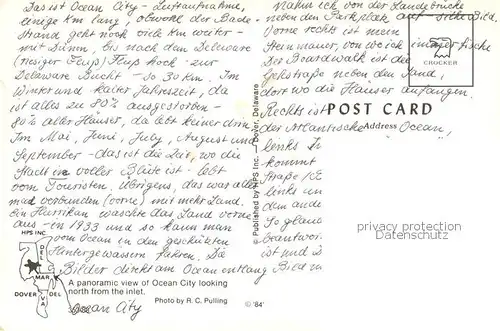 Das ist Ocean City - Luftaufnahme,
einige km lang, obwohl der Bade-
Strand geht noch viele km weiter -
mit Dünen, bis nach dem Delaware
(riesiger Fluß) Fluß hoch - zur
Delaware Bucht - so 30 km. Im
Winter und kalter Jahreszeit, da
ist alles zu 80% ausgestorben -
80% aller Häuser, da lebt keiner drin.
Im Mai, Juni, July, August und
September - das ist die Zeit, wo die
Stadt in voller Blüte ist - lebt
vom Touristen. Übrigens, das war alles
mal verbunden (vorne) mit mehr Land.
Ein Hurrikan waschte das Land vorne
aus - in 1933 und so kann man
vom Ocean in den geschützten
Hintergewassern fahren. Die
Bilder direkt am Ocean entlang
HPS INC.
DEL
MAR
VA
DOVER DEL
A panoramic view of Ocean City looking
north from the inlet.
Photo by R. C. Pulling
© '84'
Ocean City
Published by HPS Inc. — Dover, Delaware
nahm ich von der Landebrücke
neben den Parkplatz auf
Vorne rechts ist mein
Steinmauer, von wo ich immer fische
Der Boardwalk ist die
Gehstraße neben den Sand,
dort wo die Häuser anfangen.
Rechts ist
der Atlantische Ocean,
links
kommt
Straße
links
den
So glaub
beantwor
ist und
Bild
CROCKER
POST CARD
Address
privacy protection
datenschutz